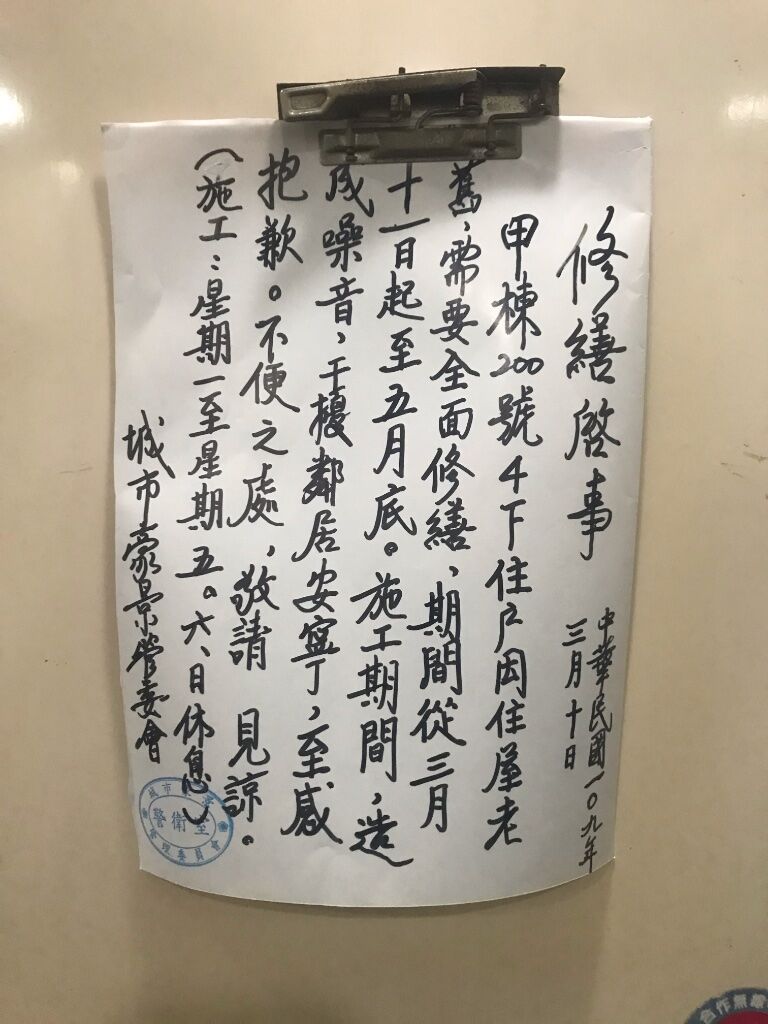 修繕啓事
中華民國一〇九年
三月十日
甲棟200號4下住戶因住屋老
舊,需要全面修繕,期間從三月
十一日起至五月底。施工期間,造
成噪音,干擾鄰居安寧,至感
抱歉。不便之處,敬請 見諒。
(施工:星期一至星期五。六、日休息)
城市豪景管委會
城市豪景
警衛室
管理委員會
合作無線